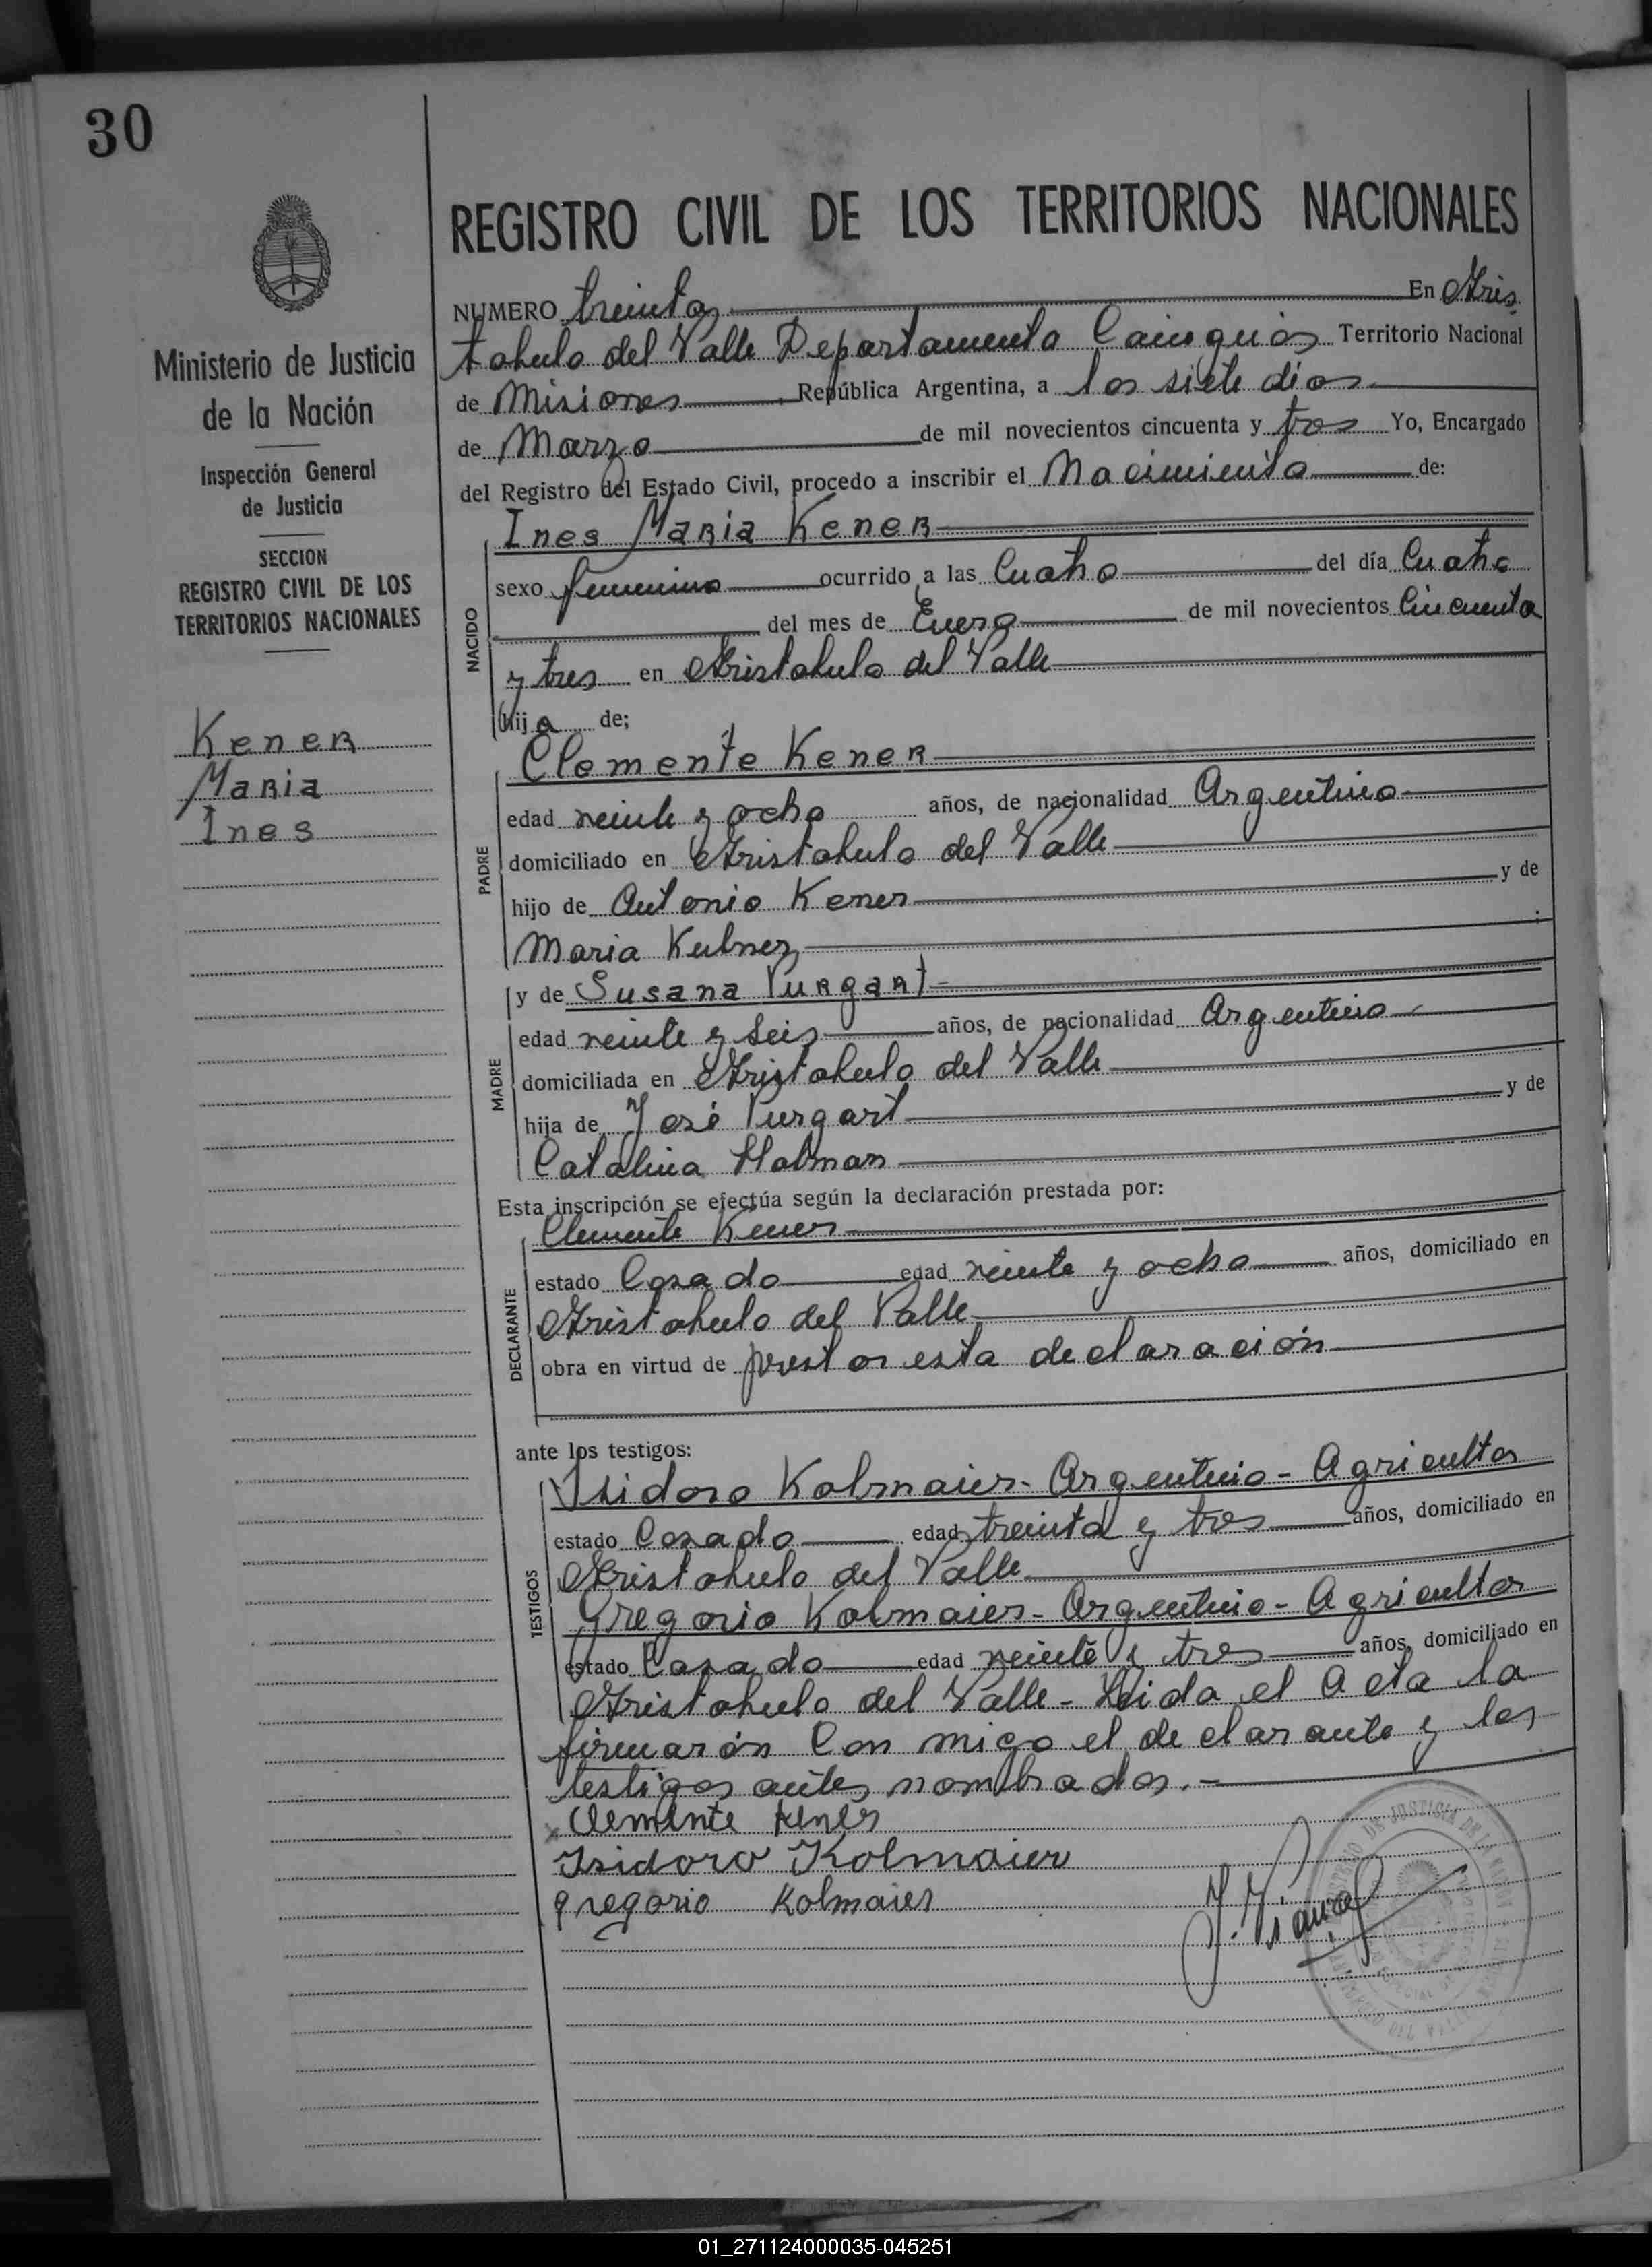 30
REGISTRO CIVIL DE LOS TERRITORIOS NACIONALES
Ministerio de Justicia
de la Nación
Inspección General
de Justicia
SECCION
REGISTRO CIVIL DE LOS
TERRITORIOS NACIONALES
Kener
Maria
Ines
NUMERO treinta En Aris
tobulo del Valle Departamento Cainguás Territorio Nacional
de Misiones República Argentina, a los siete dias
de Marzo de mil novecientos cincuenta y tres Yo, Encargado
del Registro del Estado Civil, procedo a inscribir el Nacimiento de:
NACIDO
Ines Maria Kener
sexo femenino ocurrido a las Cuatro del día Cuatro
del mes de Enero de mil novecientos Cincuenta
y tres en Aristobulo del Valle
(hija de;
PADRE
Clemente Kener
edad veinte y ocho años, de nacionalidad Argentino
domiciliado en Aristobulo del Valle
hijo de Antonio Kener y de
Maria Kubnez ;
MADRE
y de Susana Purgart
edad veinte y seis años, de nacionalidad Argentino
domiciliada en Aristobulo del Valle
hija de José Purgart y de
Catalina Halman
Esta inscripción se efectúa según la declaración prestada por:
DECLARANTE
Clemente Kener
estado Casado edad veinte y ocho años, domiciliado en
Aristobulo del Valle
obra en virtud de prestar esta declaración
ante los testigos:
TESTIGOS
Isidoro Kolmaier - Argentino - Agricultor
estado Casado edad treinta y tres años, domiciliado en
Aristobulo del Valle
Gregorio Kolmaier - Argentino - Agricultor
estado Casado edad veinte y tres años, domiciliado en
Aristobulo del Valle - Leida el Acta la
firmarón Con migo el declarante y los
testigos antes nombrados. -
x Clemente Kener
Isidoro Kolmaier
gregorio Kolmaier
01_271124000035-045251